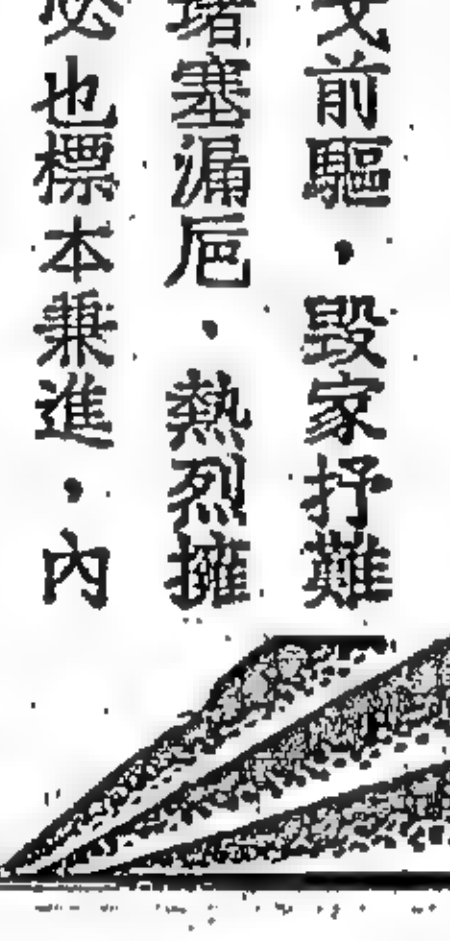 前驅，毀家抒難
塞漏巵，熱烈擁
也標本兼進，內